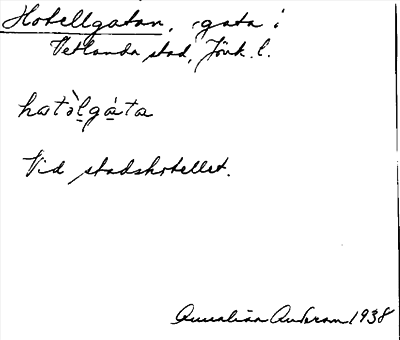 Hotellgatan, gata i
Vetlanda stad, Jönk. l.
hωtὰlgáta
Vid stadshotellet.
Annalisa Anderson 1938